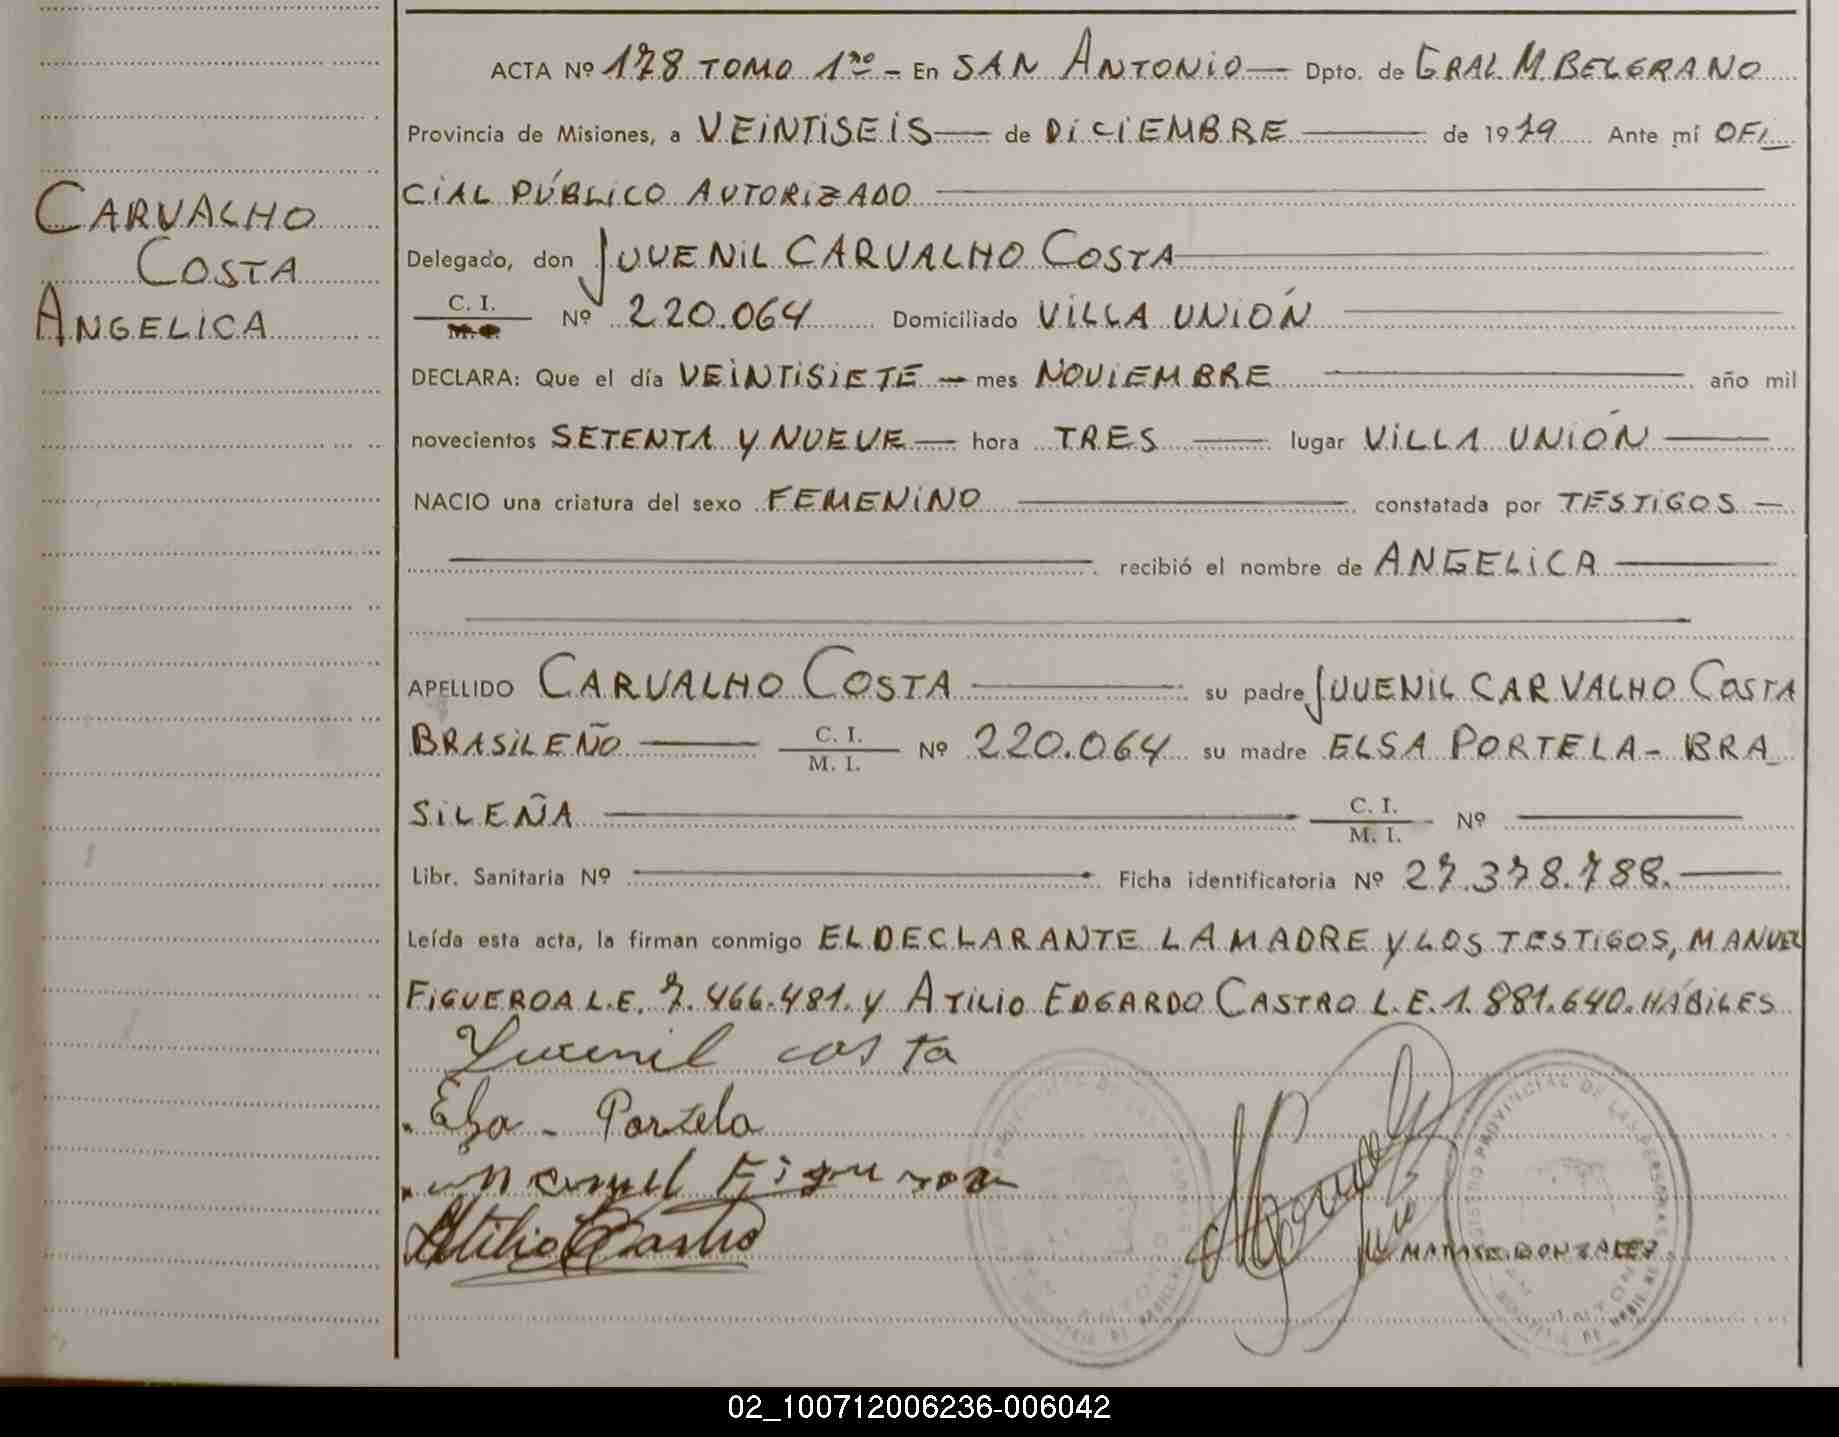 ACTA Nº 178 TOMO 1ro - En SAN ANTONIO — Dpto. de GRAL M. BELGRANO
Provincia de Misiones, a VEINTISEIS — de DICIEMBRE — de 1979 Ante mí OFI
CIAL PÚBLICO AUTORIZADO
CARVALHO
COSTA
ANGELICA
Delegado, don JUVENIL CARVALHO COSTA
C. I.
M. I. Nº 220.064 Domiciliado VILLA UNIÓN
DECLARA: Que el día VEINTISIETE — mes NOVIEMBRE — año mil
novecientos SETENTA Y NUEVE — hora TRES — lugar VILLA UNIÓN —
NACIO una criatura del sexo FEMENINO — constatada por TESTIGOS —
recibió el nombre de ANGELICA —
APELLIDO CARVALHO COSTA — su padre JUVENIL CARVALHO COSTA
BRASILEÑO — C. I. / M. I. Nº 220.064 su madre ELSA PORTELA - BRA
SILEÑA — C. I. / M. I. Nº —
Libr. Sanitaria Nº — Ficha identificatoria Nº 27.378.788. —
Leída esta acta, la firman conmigo EL DECLARANTE LA MADRE Y LOS TESTIGOS, MANUEL
FIGUEROA L.E. 7.466.481. Y ATILIO EDGARDO CASTRO L.E. 1.881.640. HÁBILES
Juvenil costa
Elsa - Portela
Manuel Figueroa
Atilio Castro
GONZALEZ
REGISTRO PROVINCIAL DE LAS PERSONAS
02_100712006236-006042